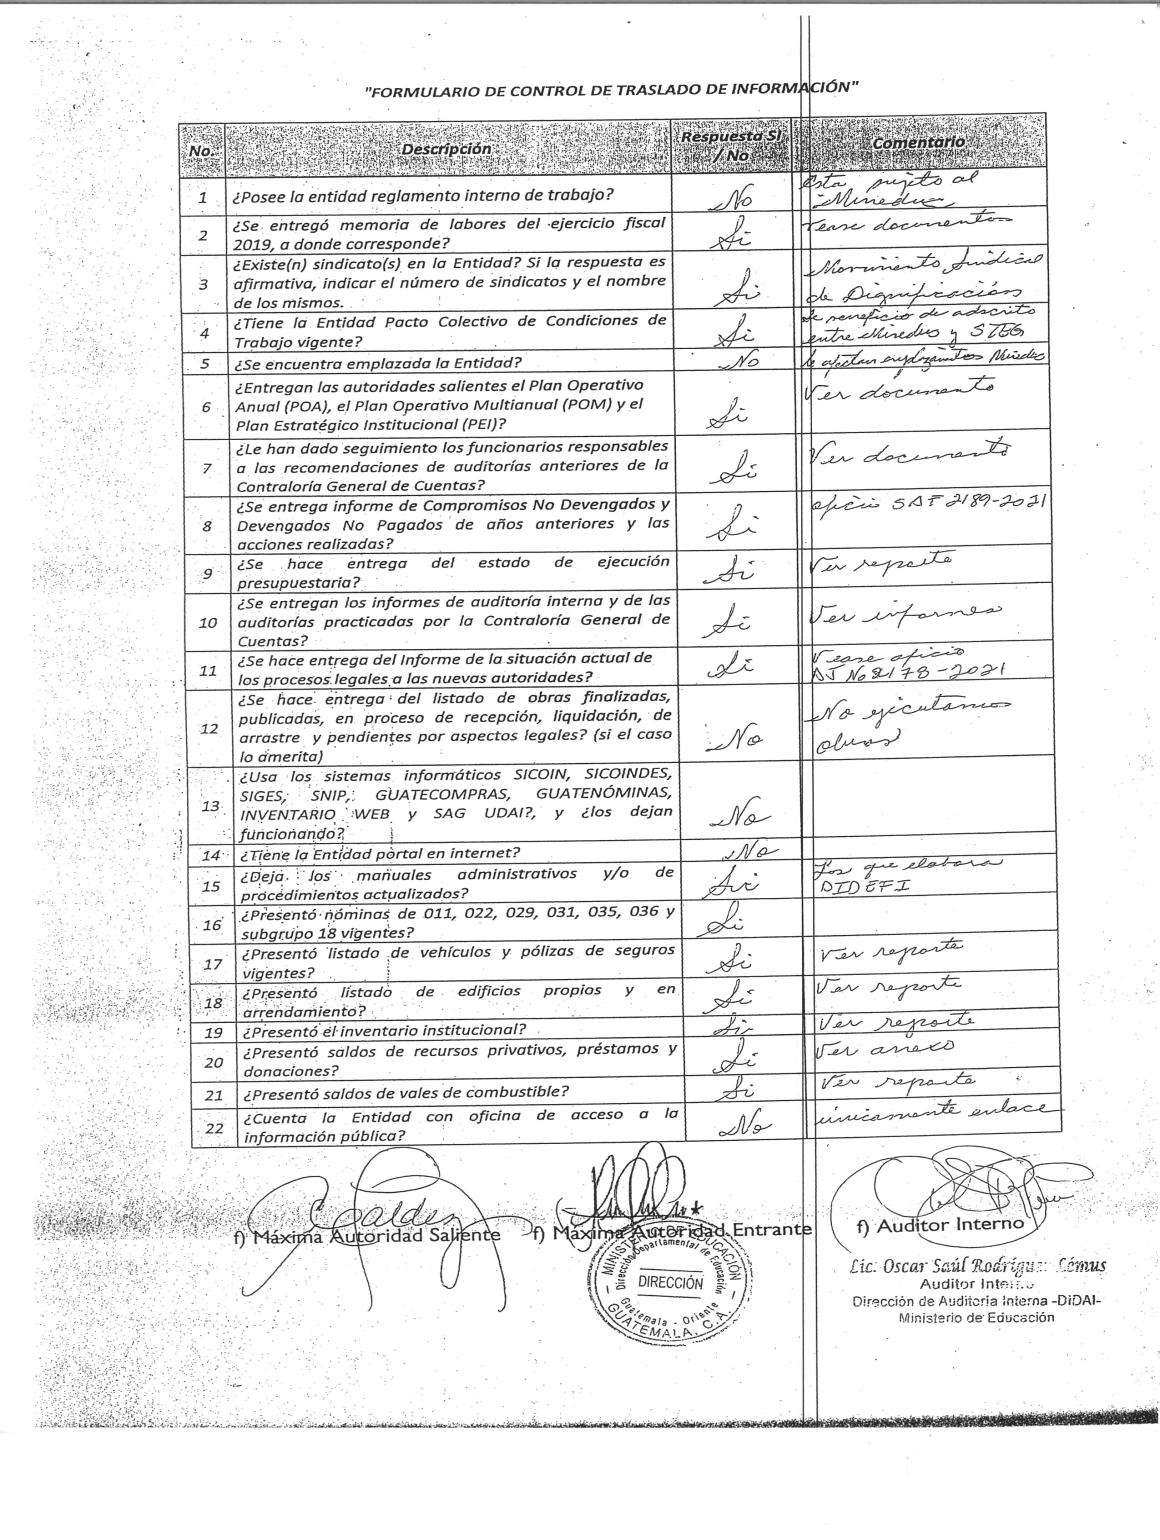 "FORMULARIO DE CONTROL DE TRASLADO DE INFORMACIÓN"
No. Descripción Respuesta SI / No Comentario
1 ¿Posee la entidad reglamento interno de trabajo? No Esta sujeto al Mineduc
2 ¿Se entregó memoria de labores del ejercicio fiscal
2019, a donde corresponde? Si Vease documentos
3 ¿Existe(n) sindicato(s) en la Entidad? Si la respuesta es
afirmativa, indicar el número de sindicatos y el nombre
de los mismos. Si Movimiento Sindical
de Dignificación
4 ¿Tiene la Entidad Pacto Colectivo de Condiciones de
Trabajo vigente? Si Se beneficio de adscrito
entre Mineduc y STEG
5 ¿Se encuentra emplazada la Entidad? No afectan Mineduc
6 ¿Entregan las autoridades salientes el Plan Operativo
Anual (POA), el Plan Operativo Multianual (POM) y el
Plan Estratégico Institucional (PEI)? Si Ver documento
7 ¿Le han dado seguimiento los funcionarios responsables
a las recomendaciones de auditorías anteriores de la
Contraloría General de Cuentas? Si Ver documento
8 ¿Se entrega informe de Compromisos No Devengados y
Devengados No Pagados de años anteriores y las
acciones realizadas? Si oficio SAF 2189-2021
9 ¿Se hace entrega del estado de ejecución
presupuestaria? Si Ver reporte
10 ¿Se entregan los informes de auditoría interna y de las
auditorías practicadas por la Contraloría General de
Cuentas? Si Ver informes
11 ¿Se hace entrega del Informe de la situación actual de
los procesos legales a las nuevas autoridades? Si Vease oficio
DJ No 2178-2021
12 ¿Se hace entrega del listado de obras finalizadas,
publicadas, en proceso de recepción, liquidación, de
arrastre y pendientes por aspectos legales? (si el caso
lo amerita) No No ejecutamos
obras
13 ¿Usa los sistemas informáticos SICOIN, SICOINDES,
SIGES, SNIP, GUATECOMPRAS, GUATENÓMINAS,
INVENTARIO WEB y SAG UDAI?, y ¿los dejan
funcionando? No
14 ¿Tiene la Entidad portal en internet? No
15 ¿Deja los manuales administrativos y/o de
procedimientos actualizados? Si Los que elabora
DIDEFI
16 ¿Presentó nóminas de 011, 022, 029, 031, 035, 036 y
subgrupo 18 vigentes? Si
17 ¿Presentó listado de vehículos y pólizas de seguros
vigentes? Si Ver reporte
18 ¿Presentó listado de edificios propios y en
arrendamiento? Si Ver reporte
19 ¿Presentó el inventario institucional? Si Ver reporte
20 ¿Presentó saldos de recursos privativos, préstamos y
donaciones? Si Ver anexo
21 ¿Presentó saldos de vales de combustible? Si Ver reporte
22 ¿Cuenta la Entidad con oficina de acceso a la
información pública? No únicamente enlace
f) Máxima Autoridad Saliente f) Máxima Autoridad Entrante f) Auditor Interno
MINISTERIO DE EDUCACIÓN
Dirección Departamental de Educación
DIRECCIÓN
Guatemala - Oriente
GUATEMALA, C.A.
Lic. Oscar Saúl Rodríguez Lémus
Auditor Interno
Dirección de Auditoría Interna -DIDAI-
Ministerio de Educación